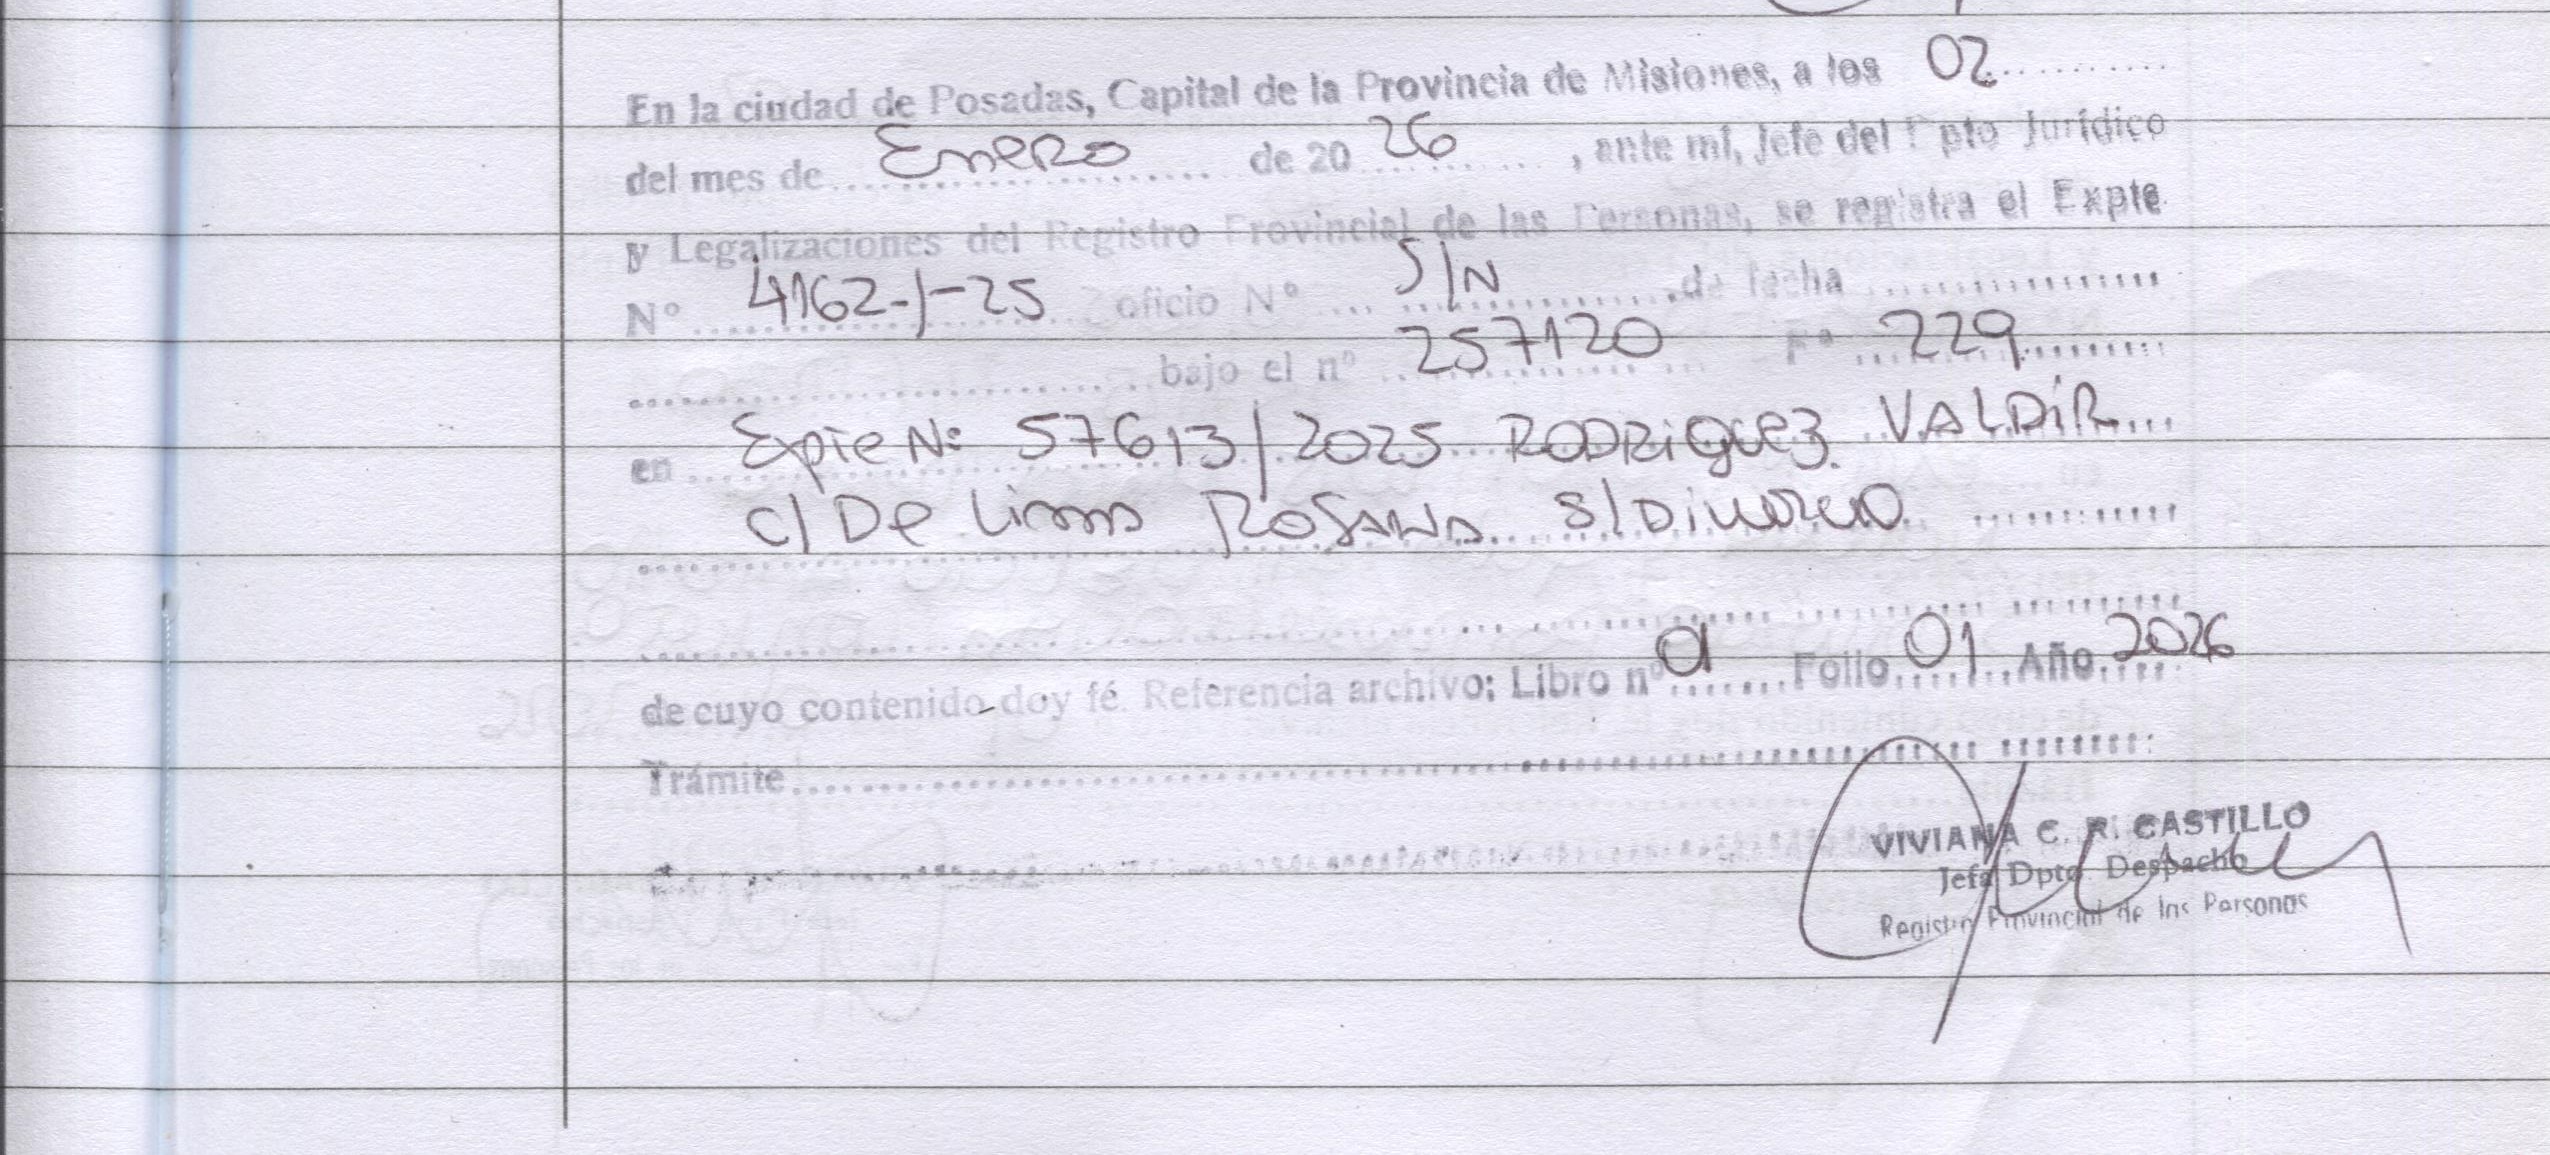 En la ciudad de Posadas, Capital de la Provincia de Misiones, a los 02
del mes de Enero de 20 26, ante mí, Jefe del Dpto Jurídico
y Legalizaciones del Registro Provincial de las Personas, se registra el Expte
Nº 4162-1-25 oficio Nº S/N de fecha
bajo el nº 257120 Fº 229
en Expte Nº 57613/2025 RODRIGUEZ VALDIR
c/ De Lima ROSANA S/ Divorcio
de cuyo contenido doy fé. Referencia archivo; Libro nº 01 Folio 01 Año 2026
Trámite
VIVIANA C. R. CASTILLO
Jefa Dpto. Despacho
Registro Provincial de las Personas